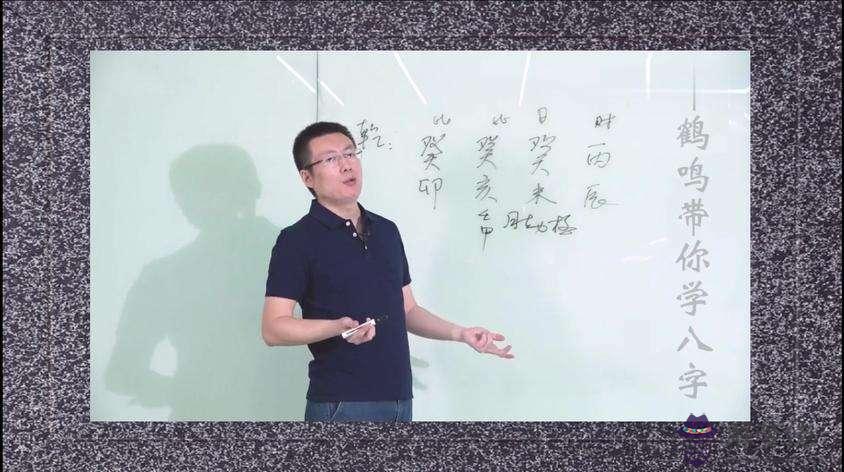 比 比 日 财
乾： 癸 癸 癸 丙
卯 亥 未 辰
壬
甲
鹤鸣带你学八字